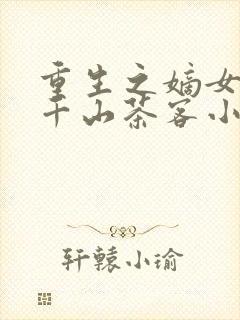 重生之嫡女
千山茶客小
轩辕小瑜